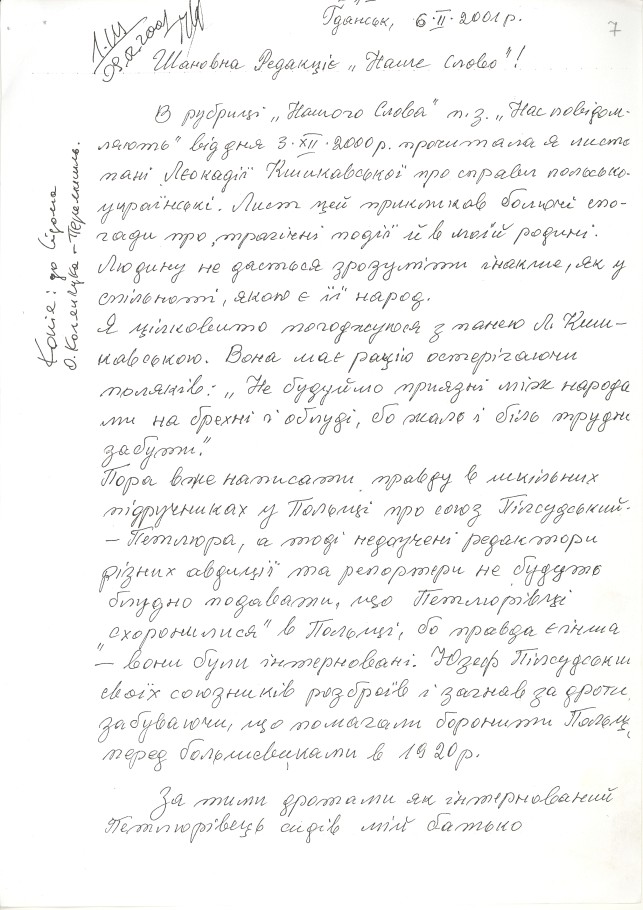 Ґданськ, 6·II·2001р.
7
1.III
Шановна Редакціє „Наше Слово"!
В рубриці „Нашого Слова" п.з. „Нас повідом-
ляють" від дня 3·XII·2000р. прочитала я листа
пані Леокадії Кшикавської про справи польсько-
українські. Лист цей прикликав болючі спо-
гади про трагічні події й в моїй родині.
Людину не дасться зрозуміти інакше, як у
спільноті, якою є її народ.
Я цілковито погоджуюся з панею Л. Кши-
кавською. Вона має рацію остерігаючи
поляків: „Не будуймо приязні між народа
ми на брехні і облуді, бо жаль і біль трудн
забути."
Пора вже написати правду в шкільних
підручниках у Польщі про союз Пілсудський-
– Петлюра, а тоді недоучені редактори
різних авдицій та репортери не будуть
блудно подавати, що Петлюрівці
„схоронилися" в Польщі, бо правда є інша
– вони були інтерновані. Юзеф Пілсудськи
своїх союзників розброїв і загнав за дроти
забуваючи, що помагали боронити Польщ
перед большевиками в 1920р.
За тими дротами як інтернований
Петлюрівець сидів мій батько
Копія: до
О. Колянчука – Перемишль.